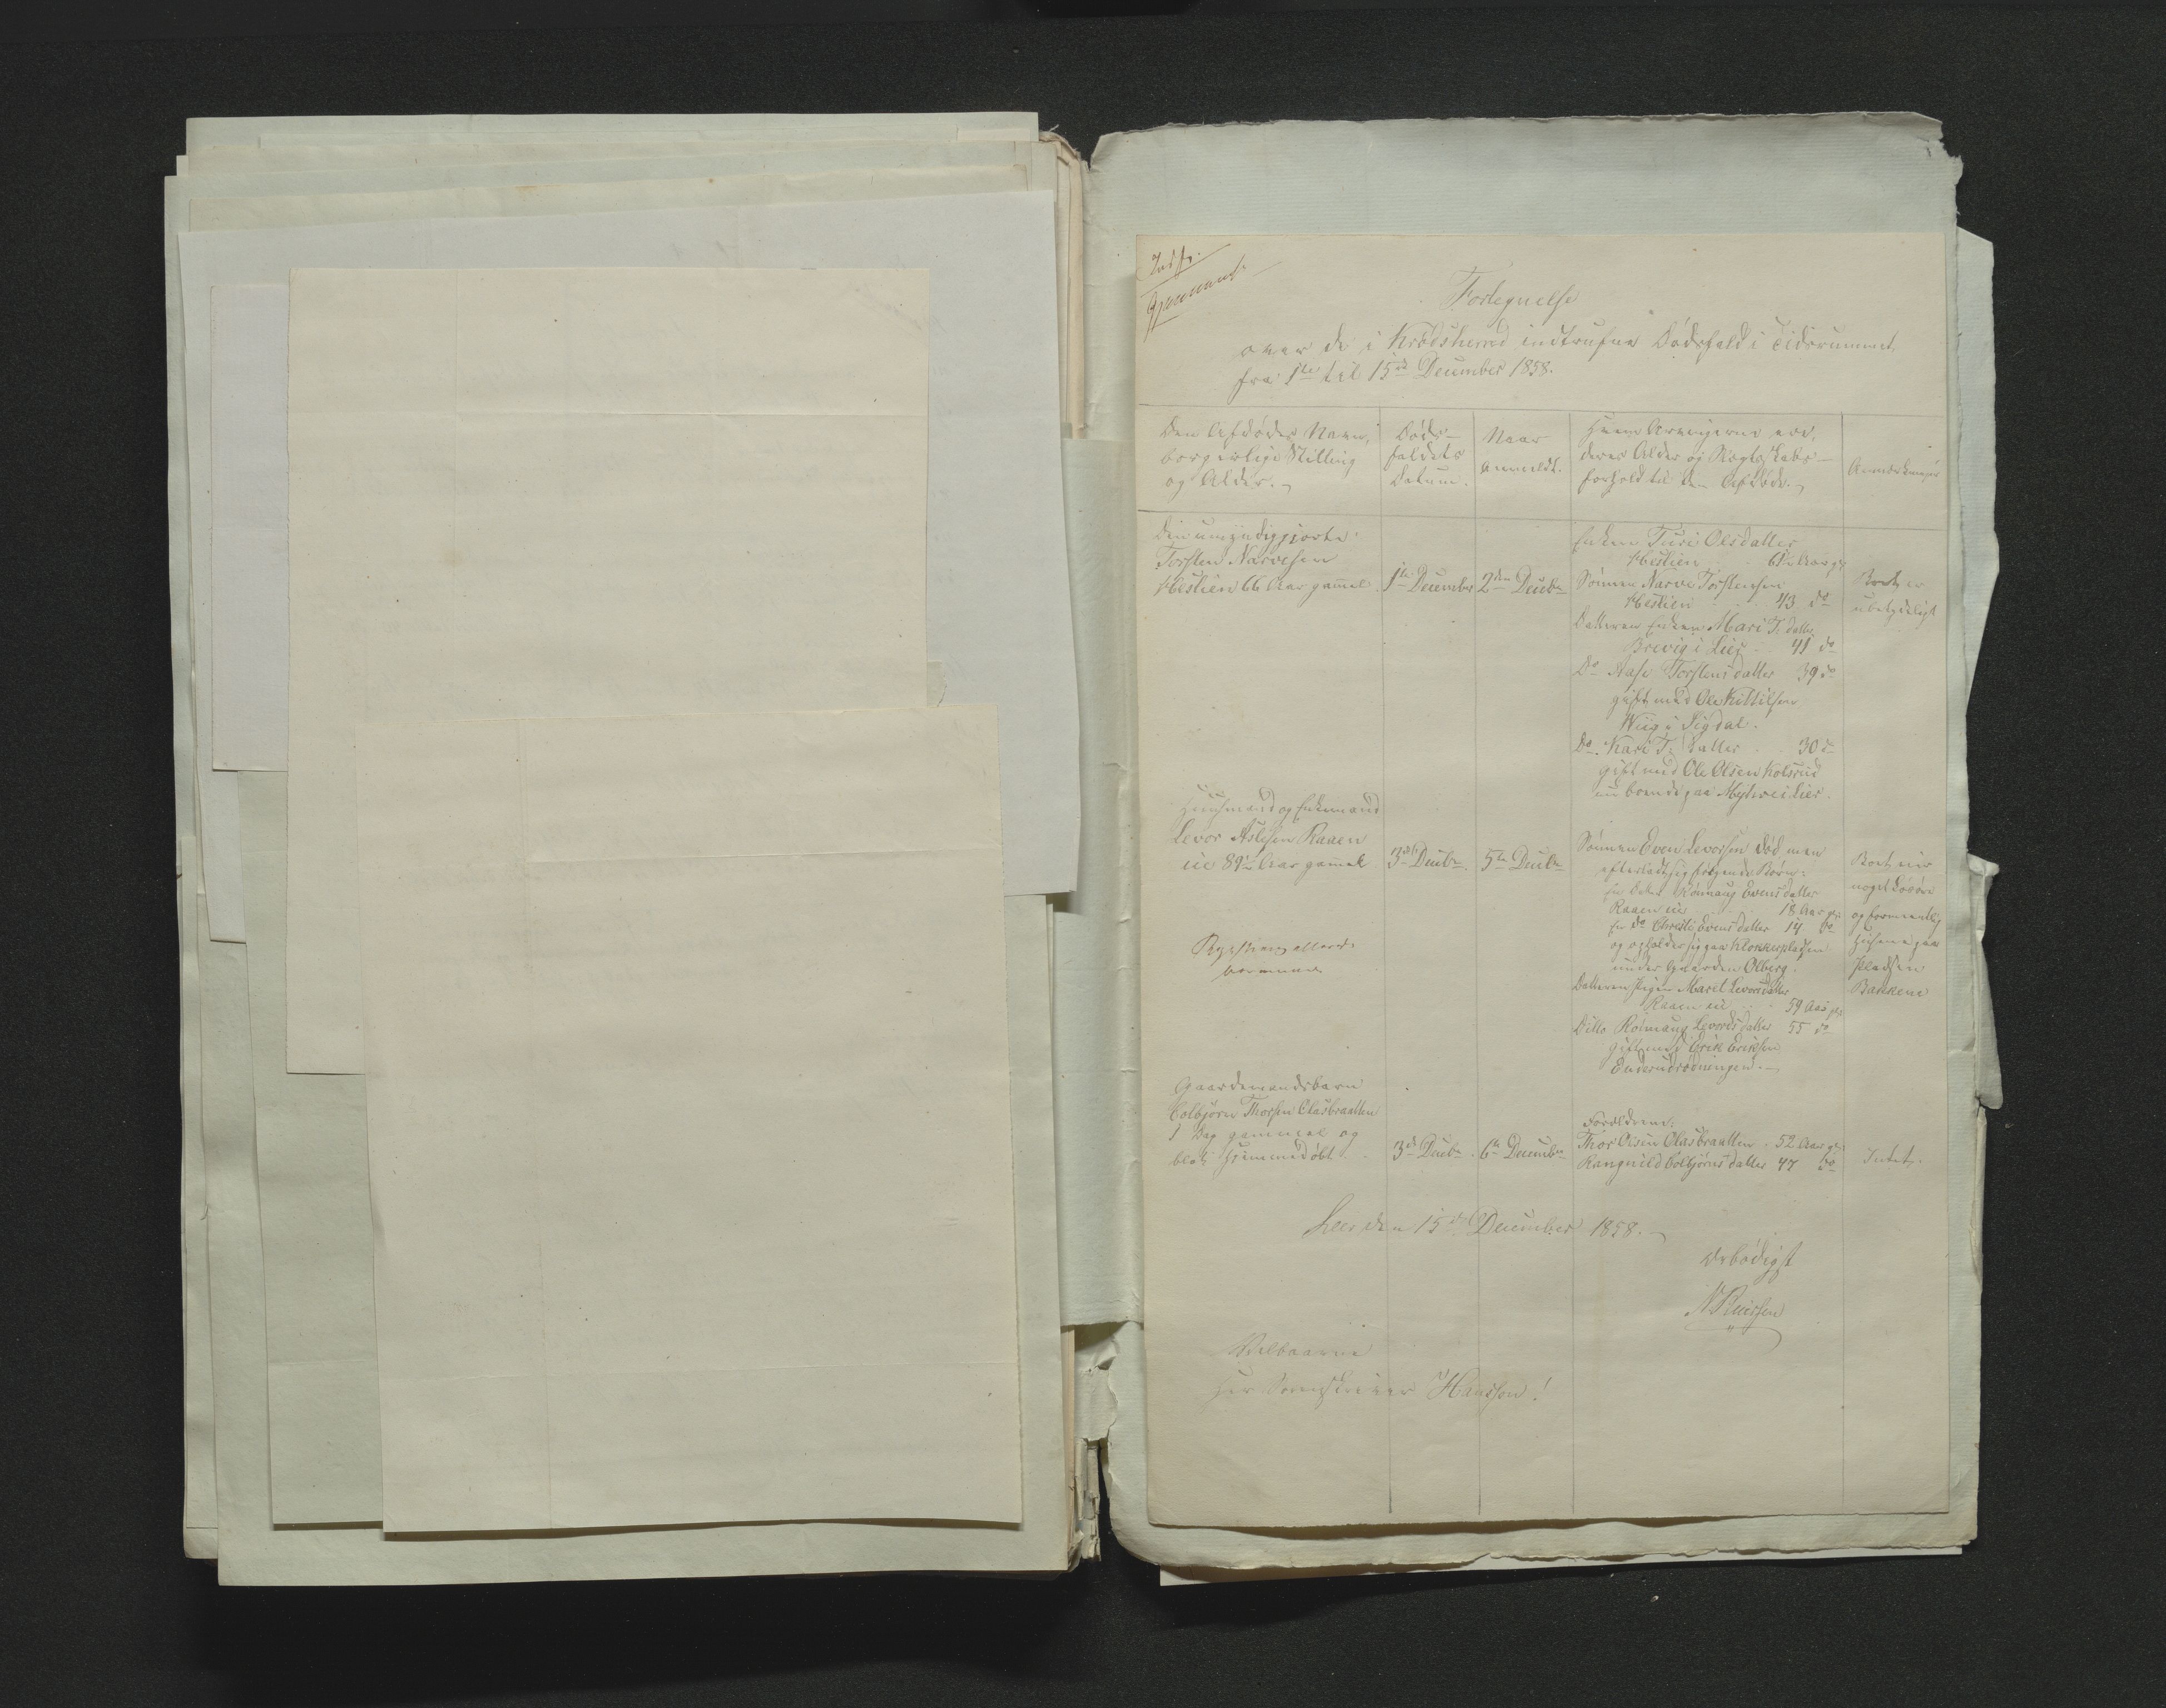 Indf.
Fortegnelse
over de i Krødsherred indtrufne Dødsfald i Tidsrummet
fra 1ste til 15de December 1858.
Den Afdødes Navn,
borgerlige Stilling
og Alder.
Døds-
faldets
Datum.
Naar
anmeldt.
Hvem Arvingerne ere,
deres Alder og Slægtskabs-
forhold til den Afdøde.
Anmærkninger
Den umyndiggjorte
Torsten Narvesen
Hestlien 66 Aar gammel.
1ste December
2den Decbr
Enken Turi Olsdatter
Hestlien Aar gl.
Sønnen Narve Torstensen
Hestlien 43 do
Datteren Enken Mari T. datter
Brevig i Lier 41 do
Do Aase Torstensdatter 39 do
gift med Ole Kittilsen
Wiig i Sigdal.
Do Kari T. datter 30 do
gift med Ole Olsen Kolsrud
nu boende paa Myhre i Lier.
Boet er
ubetydeligt
Huusmand og Enkemand
Levor Aslesen Raaen
eie 89 Aar gammel
3die Decbr.
5te Decbr
Sønnen Even Levorsen død men
efterladt sig følgende Børn:
En Datter Rønnaug Evensdatter
Raaen eie 18 Aar gl.
En do Christi Evensdatter 14 do
og opholder sig paa Klokkerpladsen
under Gaarden Olberg.
Datteren Pigen Marit Levorsdatter
Raaen eie 59 Aar gl.
Ditto Rønnaug Levorsdatter 55 do
gift med Erik Eriksen
Enderudrødningen.
Boet eier
noget Løsøre
og formentlig
Husene paa
Pladsen
Bakkene
Gaardmandsbarn
Colbjørn Thorsen Olasbraatten
1 Dag gammel og
blot hjemmedøbt.
3de Decbr.
6te Decembr
Forældrene:
Thor Olsen Olasbraatten 52 Aar gl.
Rangnild Colbjørnsdatter 47 do
Intet.
Leer den 15de December 1858.
Ærbødigst
Velbaarne
Herr Sorenskriver Hansson!